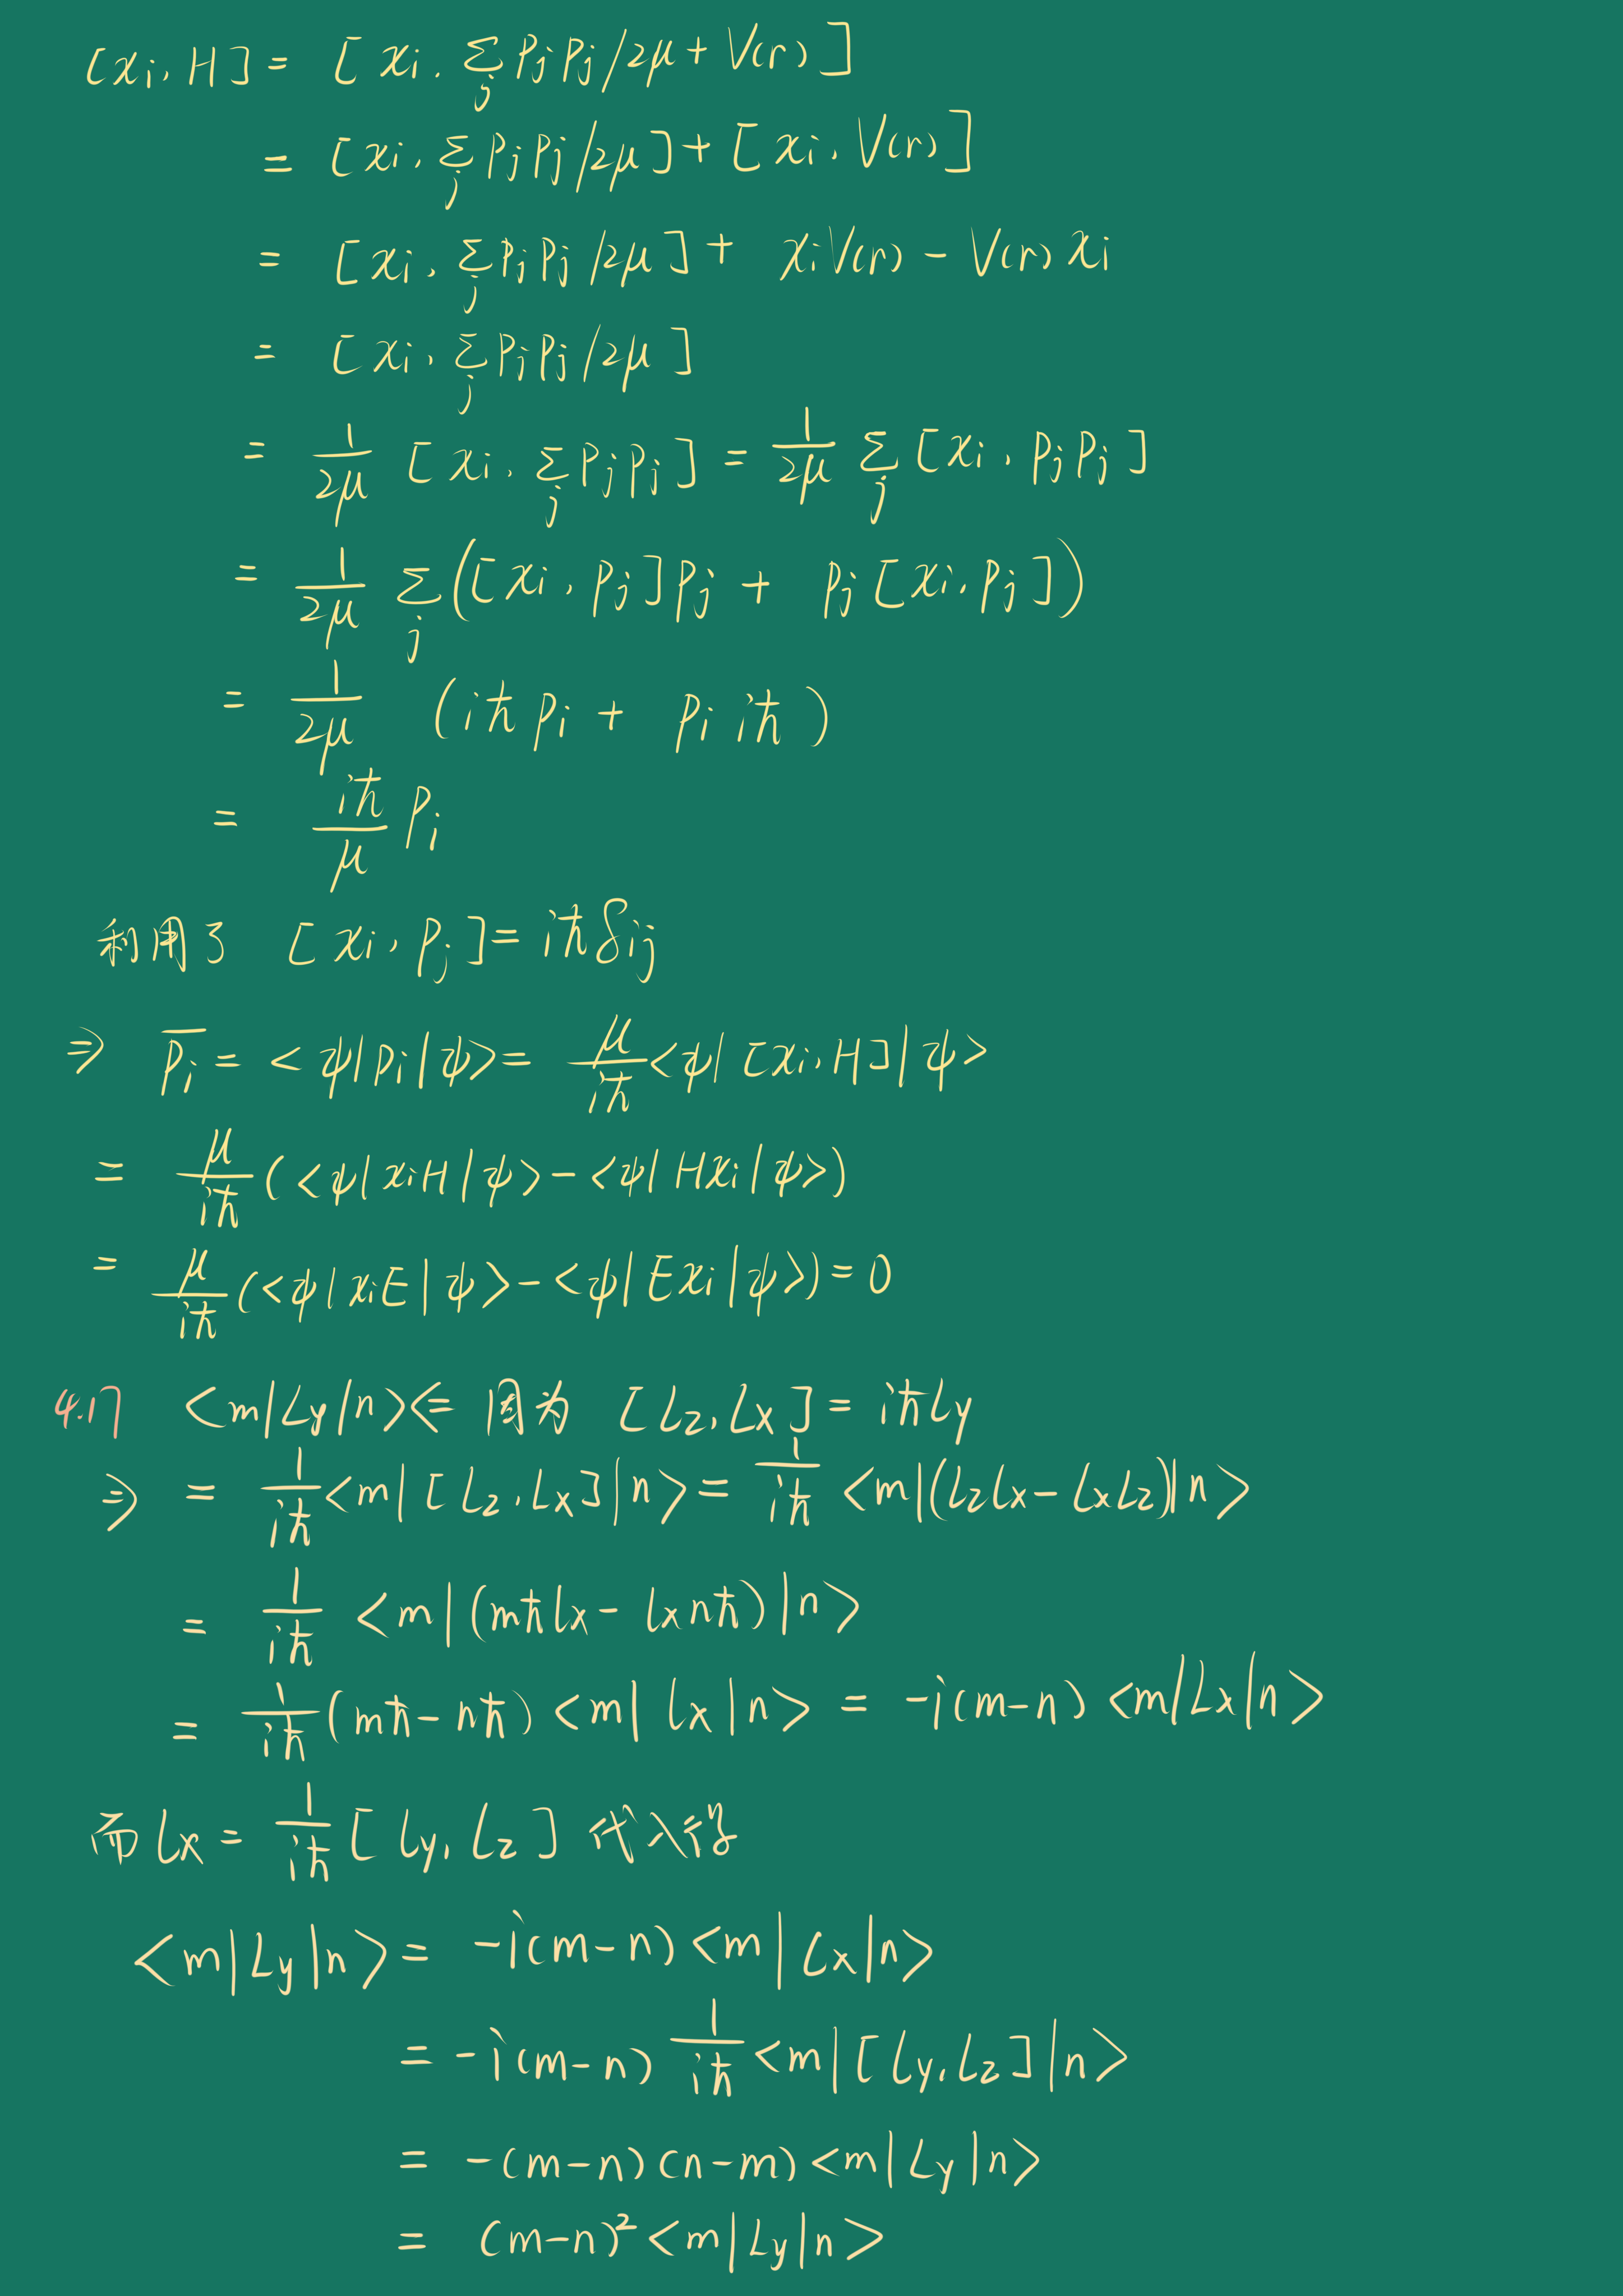 [xi, H] = [xi, Σ_j pjpj/2μ + V(r)]
= [xi, Σ_j pjpj/2μ] + [xi, V(r)]
= [xi, Σ_j pjpj/2μ] + xiV(r) - V(r)xi
= [xi, Σ_j pjpj/2μ]
= 1/2μ [xi, Σ_j pjpj] = 1/2μ Σ_j [xi, pjpj]
= 1/2μ Σ_j ([xi, pj]pj + pj[xi, pj])
= 1/2μ (iħpi + pi iħ)
= iħ/μ pi
利用了 [xi, pj] = iħδij
⇒ p̅i = <ψ|pi|ψ> = μ/iħ <ψ|[xi, H]|ψ>
= μ/iħ (<ψ|xiH|ψ> - <ψ|Hxi|ψ>)
= μ/iħ (<ψ|xiE|ψ> - <ψ|Exi|ψ>) = 0
4.17 <m|Ly|n> ⇐ 因为 [Lz, Lx] = iħLy
⇒ = 1/iħ <m|[Lz, Lx]|n> = 1/iħ <m|(LzLx - LxLz)|n>
= 1/iħ <m|(mħLx - Lxnħ)|n>
= 1/iħ (mħ - nħ) <m|Lx|n> = -i(m-n) <m|Lx|n>
而 Lx = 1/iħ [Ly, Lz] 代入得
<m|Ly|n> = -i(m-n) <m|Lx|n>
= -i(m-n) 1/iħ <m|[Ly, Lz]|n>
= -(m-n)(n-m) <m|Ly|n>
= (m-n)² <m|Ly|n>